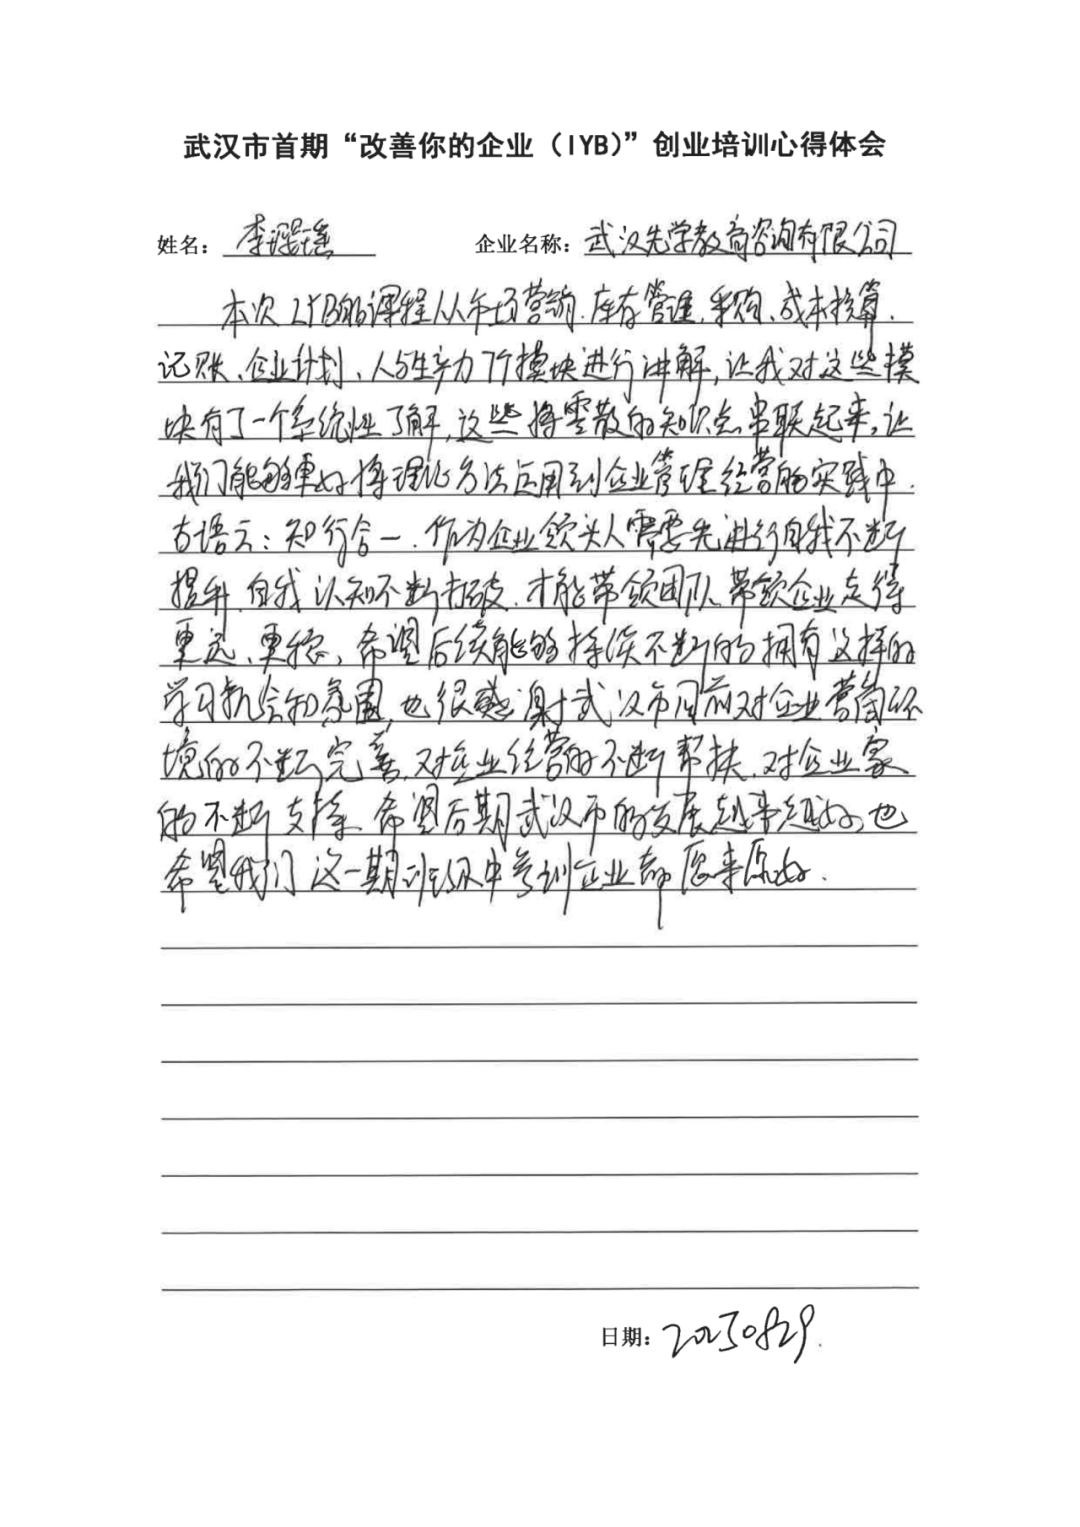 武汉市首期“改善你的企业（IYB）”创业培训心得体会
姓名：李 瑶 企业名称：武汉先学教育咨询有限公司
本次IYB的课程从市场营销、库存管理、采购、成本核算、
记账、企业计划、人与生产力7个模块进行讲解，让我对这些模
块有了一个系统性了解，这些将零散的知识点串联起来，让
我们能够更好将理论方法运用到企业管理经营的实践中.
古语云：知行合一.作为企业领头人需要先进行自我不断
提升.自我认知不断打破.才能带领团队、带领企业走得
更远、更稳，希望后续能够持续不断的拥有这样的
学习机会和氛围，也很感谢武汉市目前对企业营商环
境的不断完善，对企业经营的不断帮扶.对企业家
的不断支持.希望后期武汉市的发展越来越好，也
希望我们这一期班级中参训企业都愿来愿好.
日期：20250829.